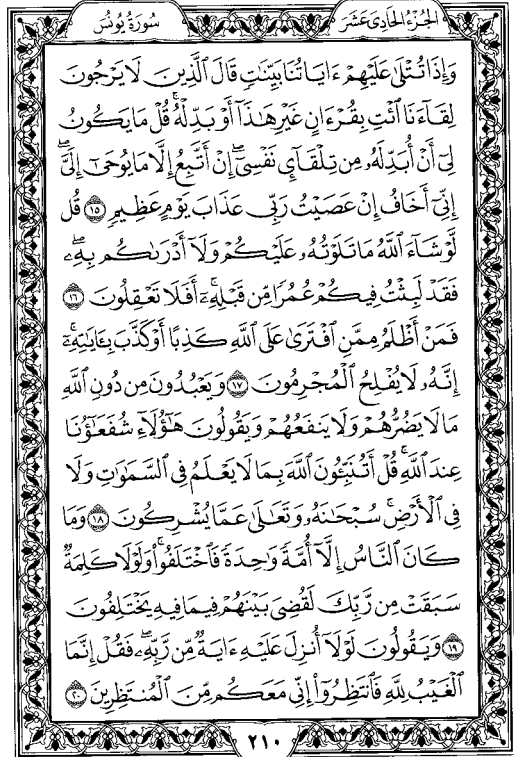 سُورَةُ يُونُسَ
الجُزْءُ الحَادِيَ عَشَرَ
وَإِذَا تُتْلَىٰ عَلَيْهِمْ ءَايَاتُنَا بَيِّنَٰتٍ قَالَ ٱلَّذِينَ لَا يَرْجُونَ
لِقَآءَنَا ٱئْتِ بِقُرْءَانٍ غَيْرِ هَٰذَآ أَوْ بَدِّلْهُ ۚ قُلْ مَا يَكُونُ
لِىٓ أَنْ أُبَدِّلَهُۥ مِن تِلْقَآئِ نَفْسِىٓ ۖ إِنْ أَتَّبِعُ إِلَّا مَا يُوحَىٰٓ إِلَىَّ ۖ
إِنِّىٓ أَخَافُ إِنْ عَصَيْتُ رَبِّى عَذَابَ يَوْمٍ عَظِيمٍ ١٥ قُل
لَّوْ شَآءَ ٱللَّهُ مَا تَلَوْتُهُۥ عَلَيْكُمْ وَلَآ أَدْرَىٰكُم بِهِۦ ۖ
فَقَدْ لَبِثْتُ فِيكُمْ عُمُرًا مِّن قَبْلِهِۦٓ ۚ أَفَلَا تَعْقِلُونَ ١٦
فَمَنْ أَظْلَمُ مِمَّنِ ٱفْتَرَىٰ عَلَى ٱللَّهِ كَذِبًا أَوْ كَذَّبَ بِـَٔايَٰتِهِۦٓ ۚ
إِنَّهُۥ لَا يُفْلِحُ ٱلْمُجْرِمُونَ ١٧ وَيَعْبُدُونَ مِن دُونِ ٱللَّهِ
مَا لَا يَضُرُّهُمْ وَلَا يَنفَعُهُمْ وَيَقُولُونَ هَٰٓؤُلَآءِ شُفَعَٰٓؤُنَا
عِندَ ٱللَّهِ ۚ قُلْ أَتُنَبِّـُٔونَ ٱللَّهَ بِمَا لَا يَعْلَمُ فِى ٱلسَّمَٰوَٰتِ وَلَا
فِى ٱلْأَرْضِ ۚ سُبْحَٰنَهُۥ وَتَعَٰلَىٰ عَمَّا يُشْرِكُونَ ١٨ وَمَا
كَانَ ٱلنَّاسُ إِلَّآ أُمَّةً وَٰحِدَةً فَٱخْتَلَفُوا۟ ۚ وَلَوْلَا كَلِمَةٌ
سَبَقَتْ مِن رَّبِّكَ لَقُضِىَ بَيْنَهُمْ فِيمَا فِيهِ يَخْتَلِفُونَ
١٩ وَيَقُولُونَ لَوْلَآ أُنزِلَ عَلَيْهِ ءَايَةٌ مِّن رَّبِّهِۦ ۖ فَقُلْ إِنَّمَا
ٱلْغَيْبُ لِلَّهِ فَٱنتَظِرُوٓا۟ إِنِّى مَعَكُم مِّنَ ٱلْمُنتَظِرِينَ ٢٠
٢١٠